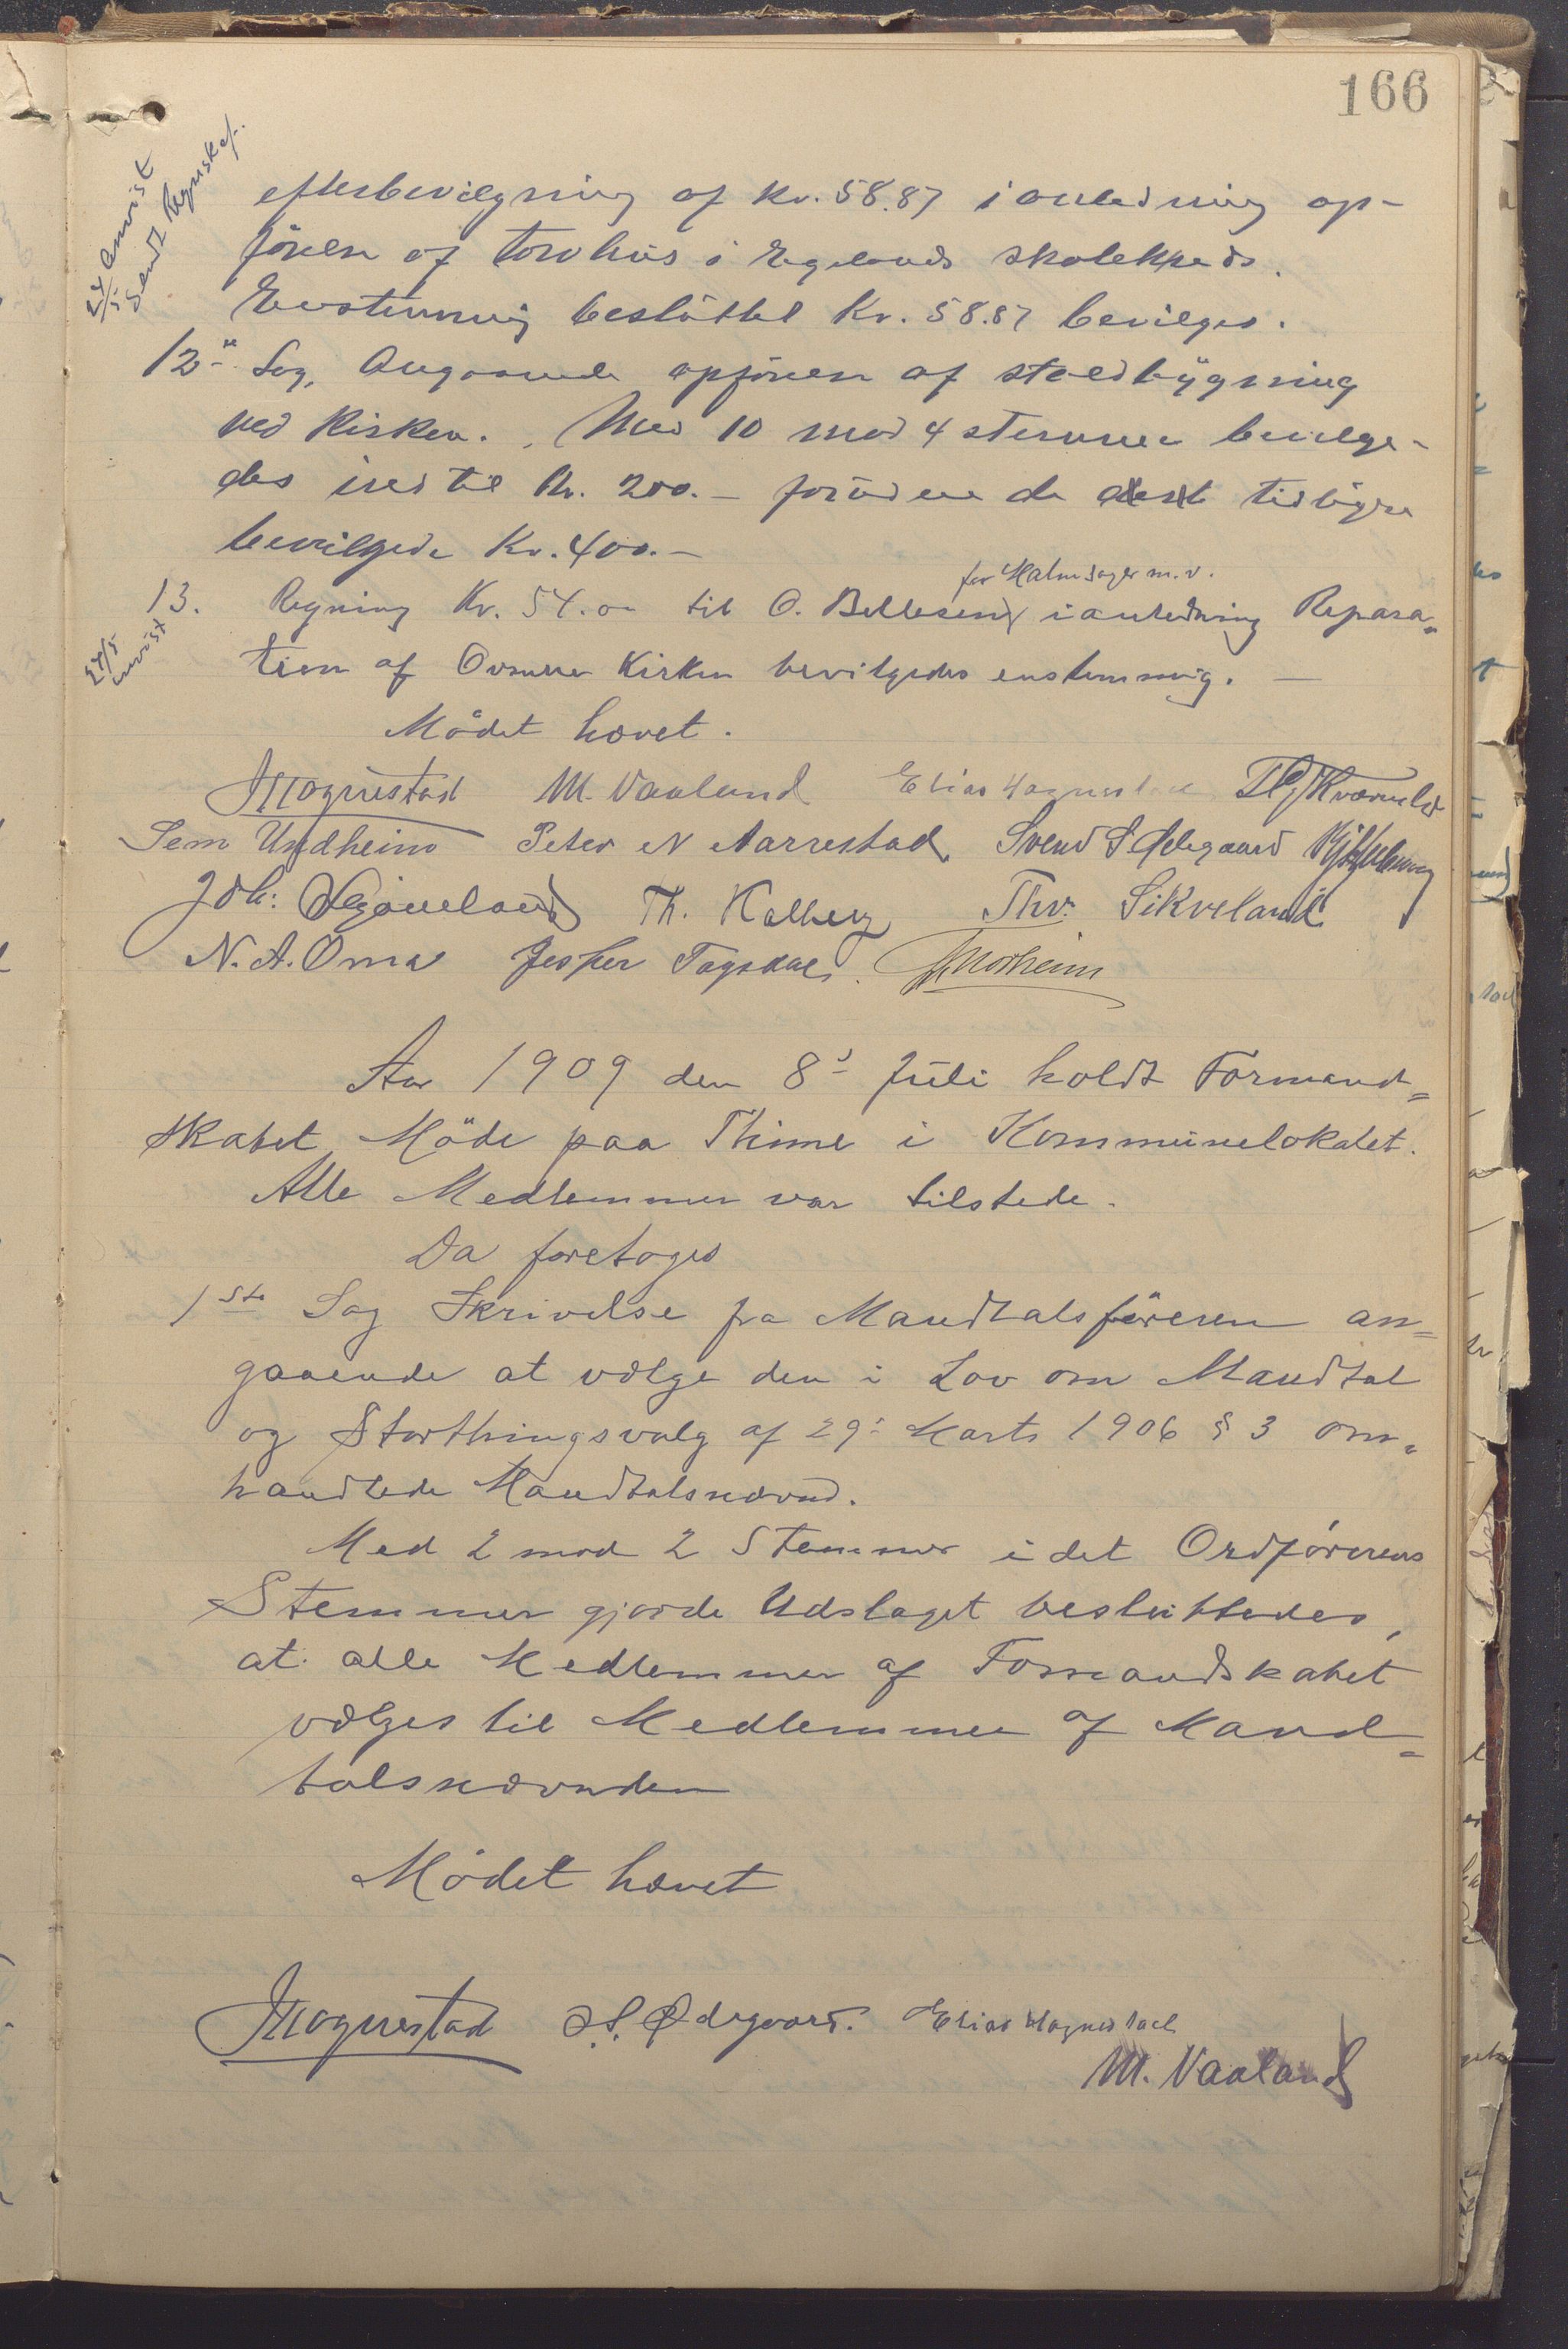 166
24/5 Anvist
Sendt Regnskf.
efterbevilgning af kr. 58.87 i anledning op-
førelse af torvhus i Egelands skolekreds.
Enstemmig besluttet Kr. 58.87 bevilges.
12te Sag, Angaaende opførelse af staldbygning
ved Kirken. Med 10 mod 4 stemmer bevilge-
des indtil Kr. 200.- foruden de tidligere
bevilgede Kr. 400.-
for Malm sager m.v.
13. Regning Kr. 54.00 til O. Bellesen i anledning Repara=
24/5 anvist
tion af Kirken bevilgedes enstemmig. —
Mødet hævet.
M. Vaaland Elias Hognestad
Sem Undheim Peter N Aarrestad Svend S Ødegaard
Joh: Th. Kalberg Thv. Sikveland
N. A. Oma Jesper Tagsdal.
Aar 1909 den 8de Juli holdt Formand=
skabet Möde paa Thime i Kommunelokalet.
Alle Medlemmer var tilstede.
Da foretoges
1ste Sag Skrivelse fra Mandtalsføreren an=
gaaende at vælge den i Lov om Mandtal
og Storthingsvalg af 29: Marts 1906 § 3 om=
handlede Mandtalsnævnd.
Med 2 mod 2 Stemmer idet Ordførerens
Stemmer gjorde Udslaget besluttedes,
at alle Medlemmer af Formandskabet
vælges til Medlemmer af Mand=
talsnævnden
Mødet hævet
S. S. Ødegaard. Elias Hognestad
M. Vaaland